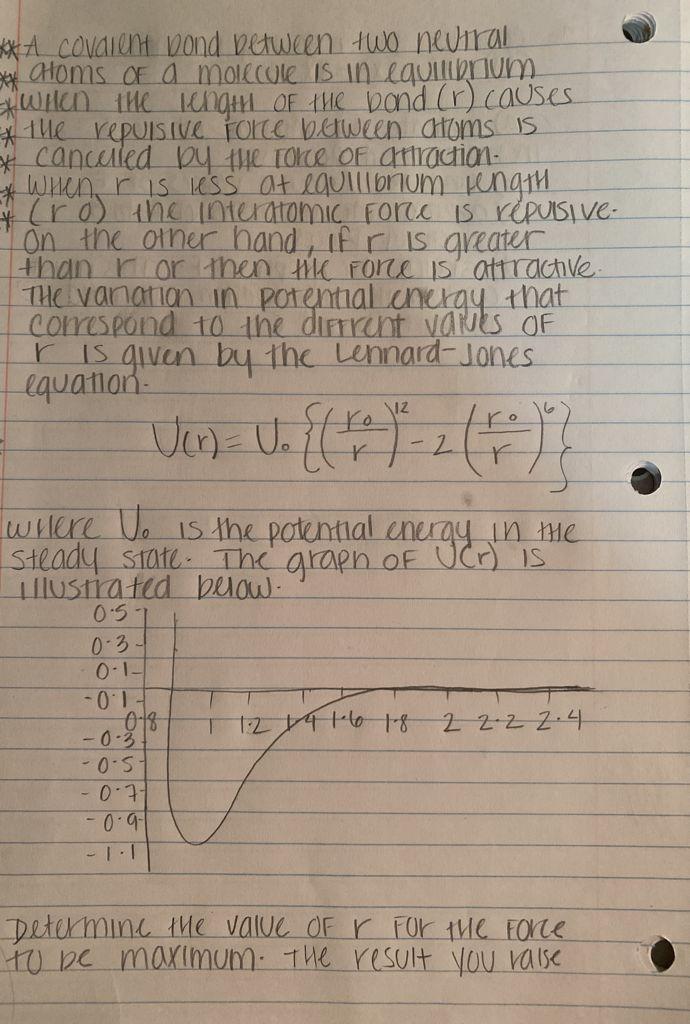 ** A covalent bond between two neutral
** atoms of a molecule is in equilibrium
* when the length of the bond (r) causes
* the repulsive force between atoms is
* cancelled by the force of attraction.
* when r is less at equilibrium length
* (r o) the interatomic force is repulsive.
on the other hand, if r is greater
than r or then the force is attractive.
The variation in potential energy that
correspond to the diffrent values of
r is given by the Lennard-Jones
equation.
U(r) = U₀ {(r₀/r)¹² - 2 (r₀/r)⁶}
where U₀ is the potential energy in the
steady state. The graph of U(r) is
illustrated below.
0.5
0.3
0.1
-0.1
0.8 1 1.2 1.4 1.6 1.8 2 2.2 2.4
-0.3
-0.5
-0.7
-0.9
-1.1
Determine the value of r for the force
to be maximum. The result you raise